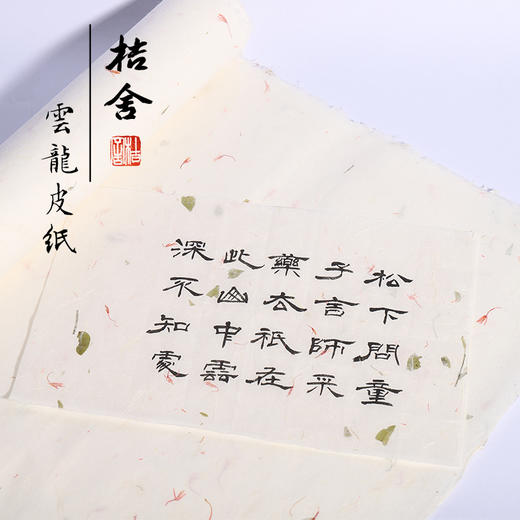 桔舍
桔舍
雲龍皮紙
松下問童
子言師采
藥去祇在
此山中雲
深不知處